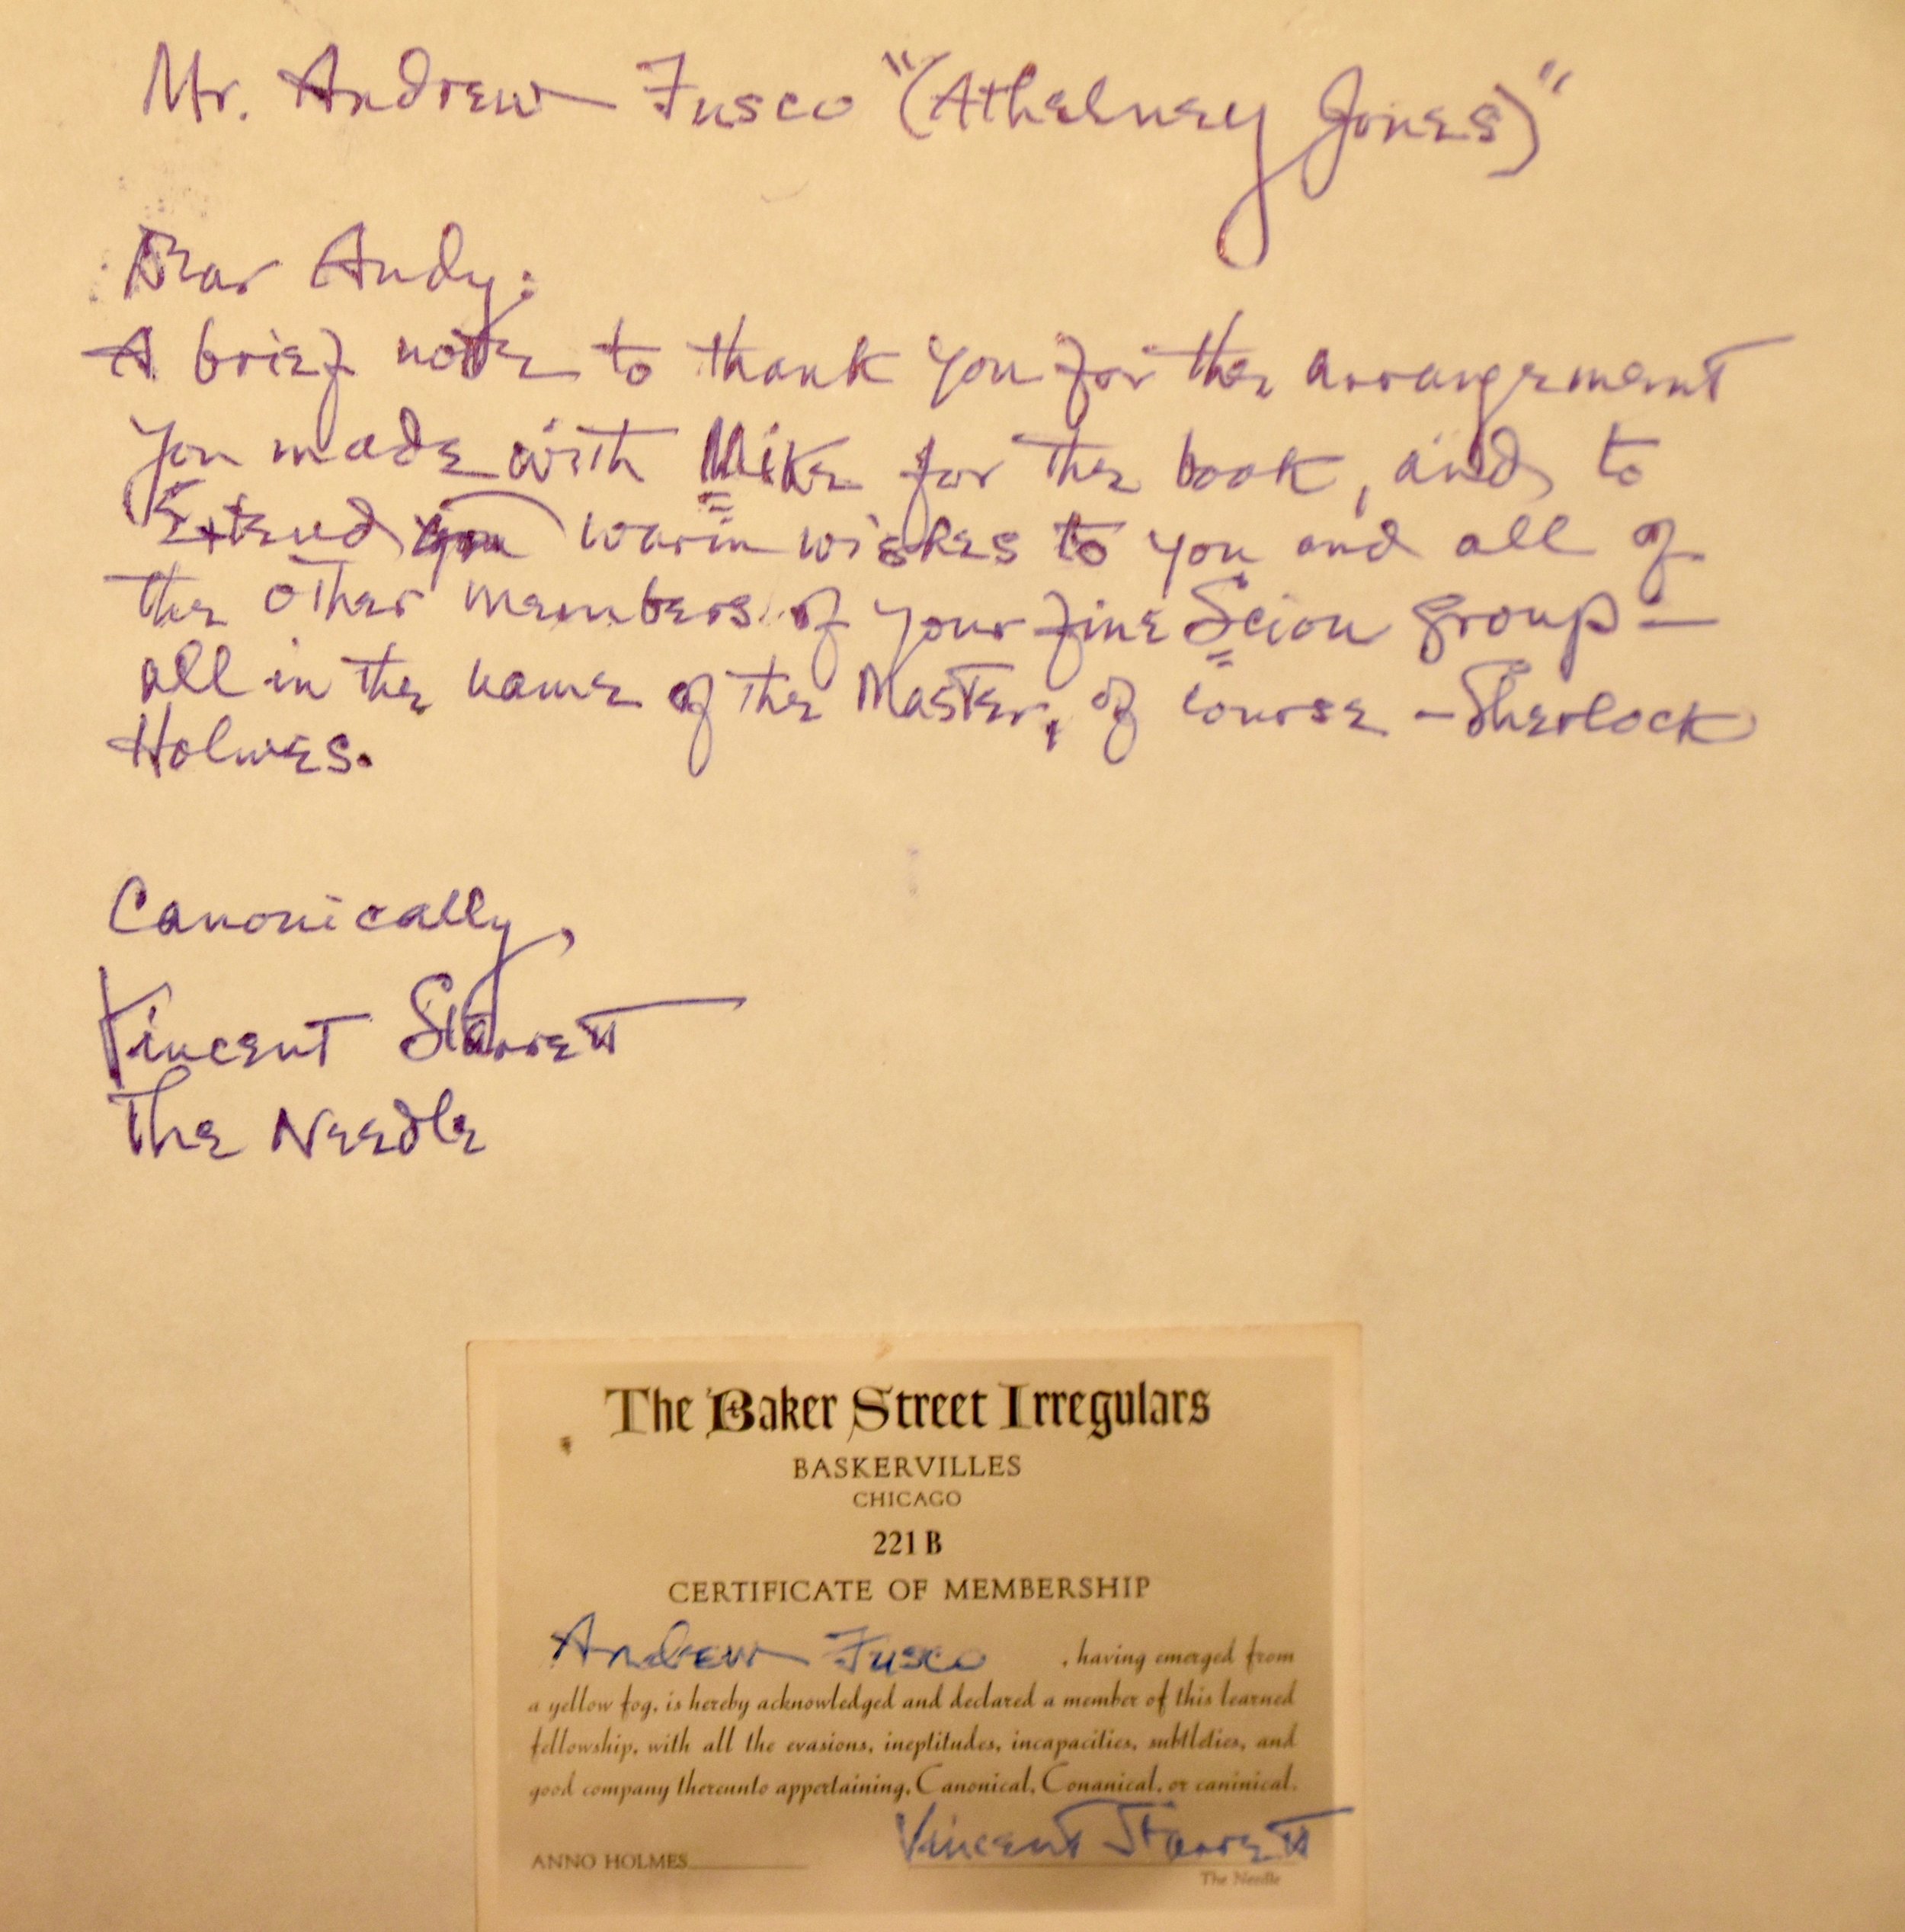 Mr. Andrew Fusco "(Athelney Jones)"
Dear Andy:
A brief note to thank you for the arrangement
you made with Mike for the book, and to
Extend you warm wishes to you and all of
the other members of your fine Scion group —
all in the name of the Master, of course — Sherlock
Holmes.
Canonically,
Vincent Starrett
The Needle
The Baker Street Irregulars
BASKERVILLES
CHICAGO
221 B
CERTIFICATE OF MEMBERSHIP
Andrew Fusco, having emerged from
a yellow fog, is hereby acknowledged and declared a member of this learned
fellowship, with all the evasions, ineptitudes, incapacities, subtleties, and
good company thereunto appertaining, Canonical, Conanical, or caninical.
Vincent Starrett
ANNO HOLMES
The Needle